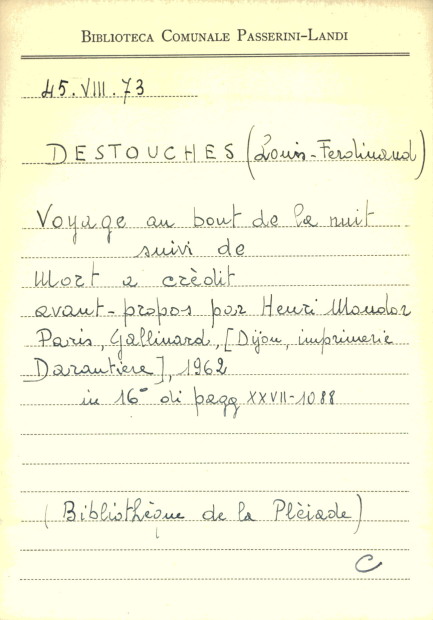 BIBLIOTECA COMUNALE PASSERINI-LANDI
45.VIII.73
DESTOUCHES (Louis-Ferdinand)
Voyage au bout de la nuit
suivi de
Mort a crèdit
avant-propos par Henri Mondor
Paris, Gallimard, [Dijon, imprimerie
Darantiere], 1962
in 16° di pagg XXVII-1088
(Bibliothèque de la Plèiade)
C